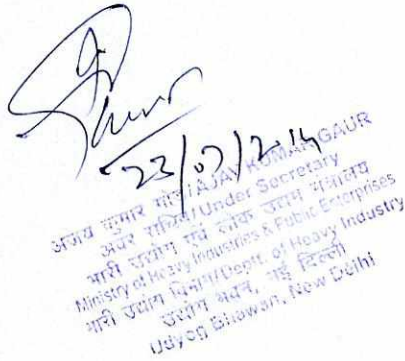 Gaur
23/07/2014
अजय कुमार गौर/AJAY KUMAR GAUR
अवर सचिव/Under Secretary
भारी उद्योग एवं लोक उद्यम मंत्रालय
Ministry of Heavy Industries & Public Enterprises
भारी उद्योग विभाग/Deptt. of Heavy Industry
उद्योग भवन, नई दिल्ली
Udyog Bhawan, New Delhi